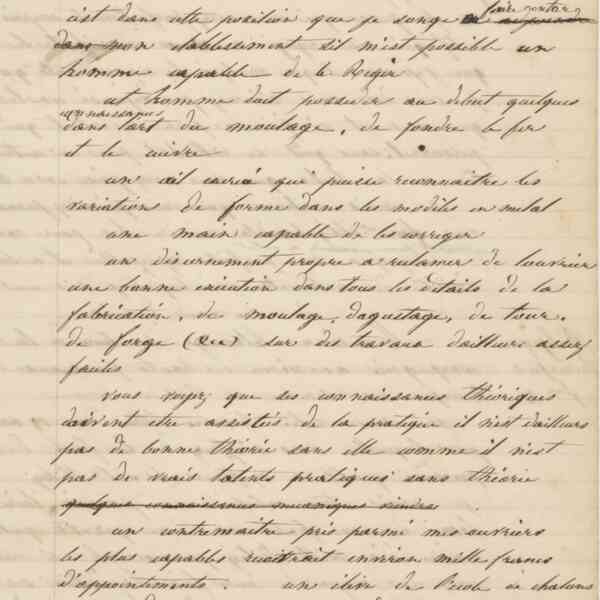 c'est dans cette position que je songe a faire gouter
dans mon etablissement s'il m'est possible un
homme capable de le Regir
cet homme doit posseder au debut quelques
connaissances
dans l'art du moulage, de fondre le fer
et le cuivre
un œil exercé qui puisse reconnaitre les
variation de forme dans les modeles en metal
une main capable de les corriger
un discernement propre a reclamer de l'ouvrier
une bonne exécution dans tous les details de la
fabrication, de moulage, d'aqustage, de tour,
de forge (&c) sur des travaux d'ailleurs assez
faciles
vous voyez que ses connaissances théoriques
doivent etre assistés de la pratique il n'est d'ailleurs
pas de bonne théorie sans elle comme il n'est
pas de vrais talents pratiques sans théorie
quelques connaissances mecaniques
un contremaitre pris parmé mes ouvriers
les plus capables recevrait environ mille francs
d'appointements. un éléve de l'ecole de chalons